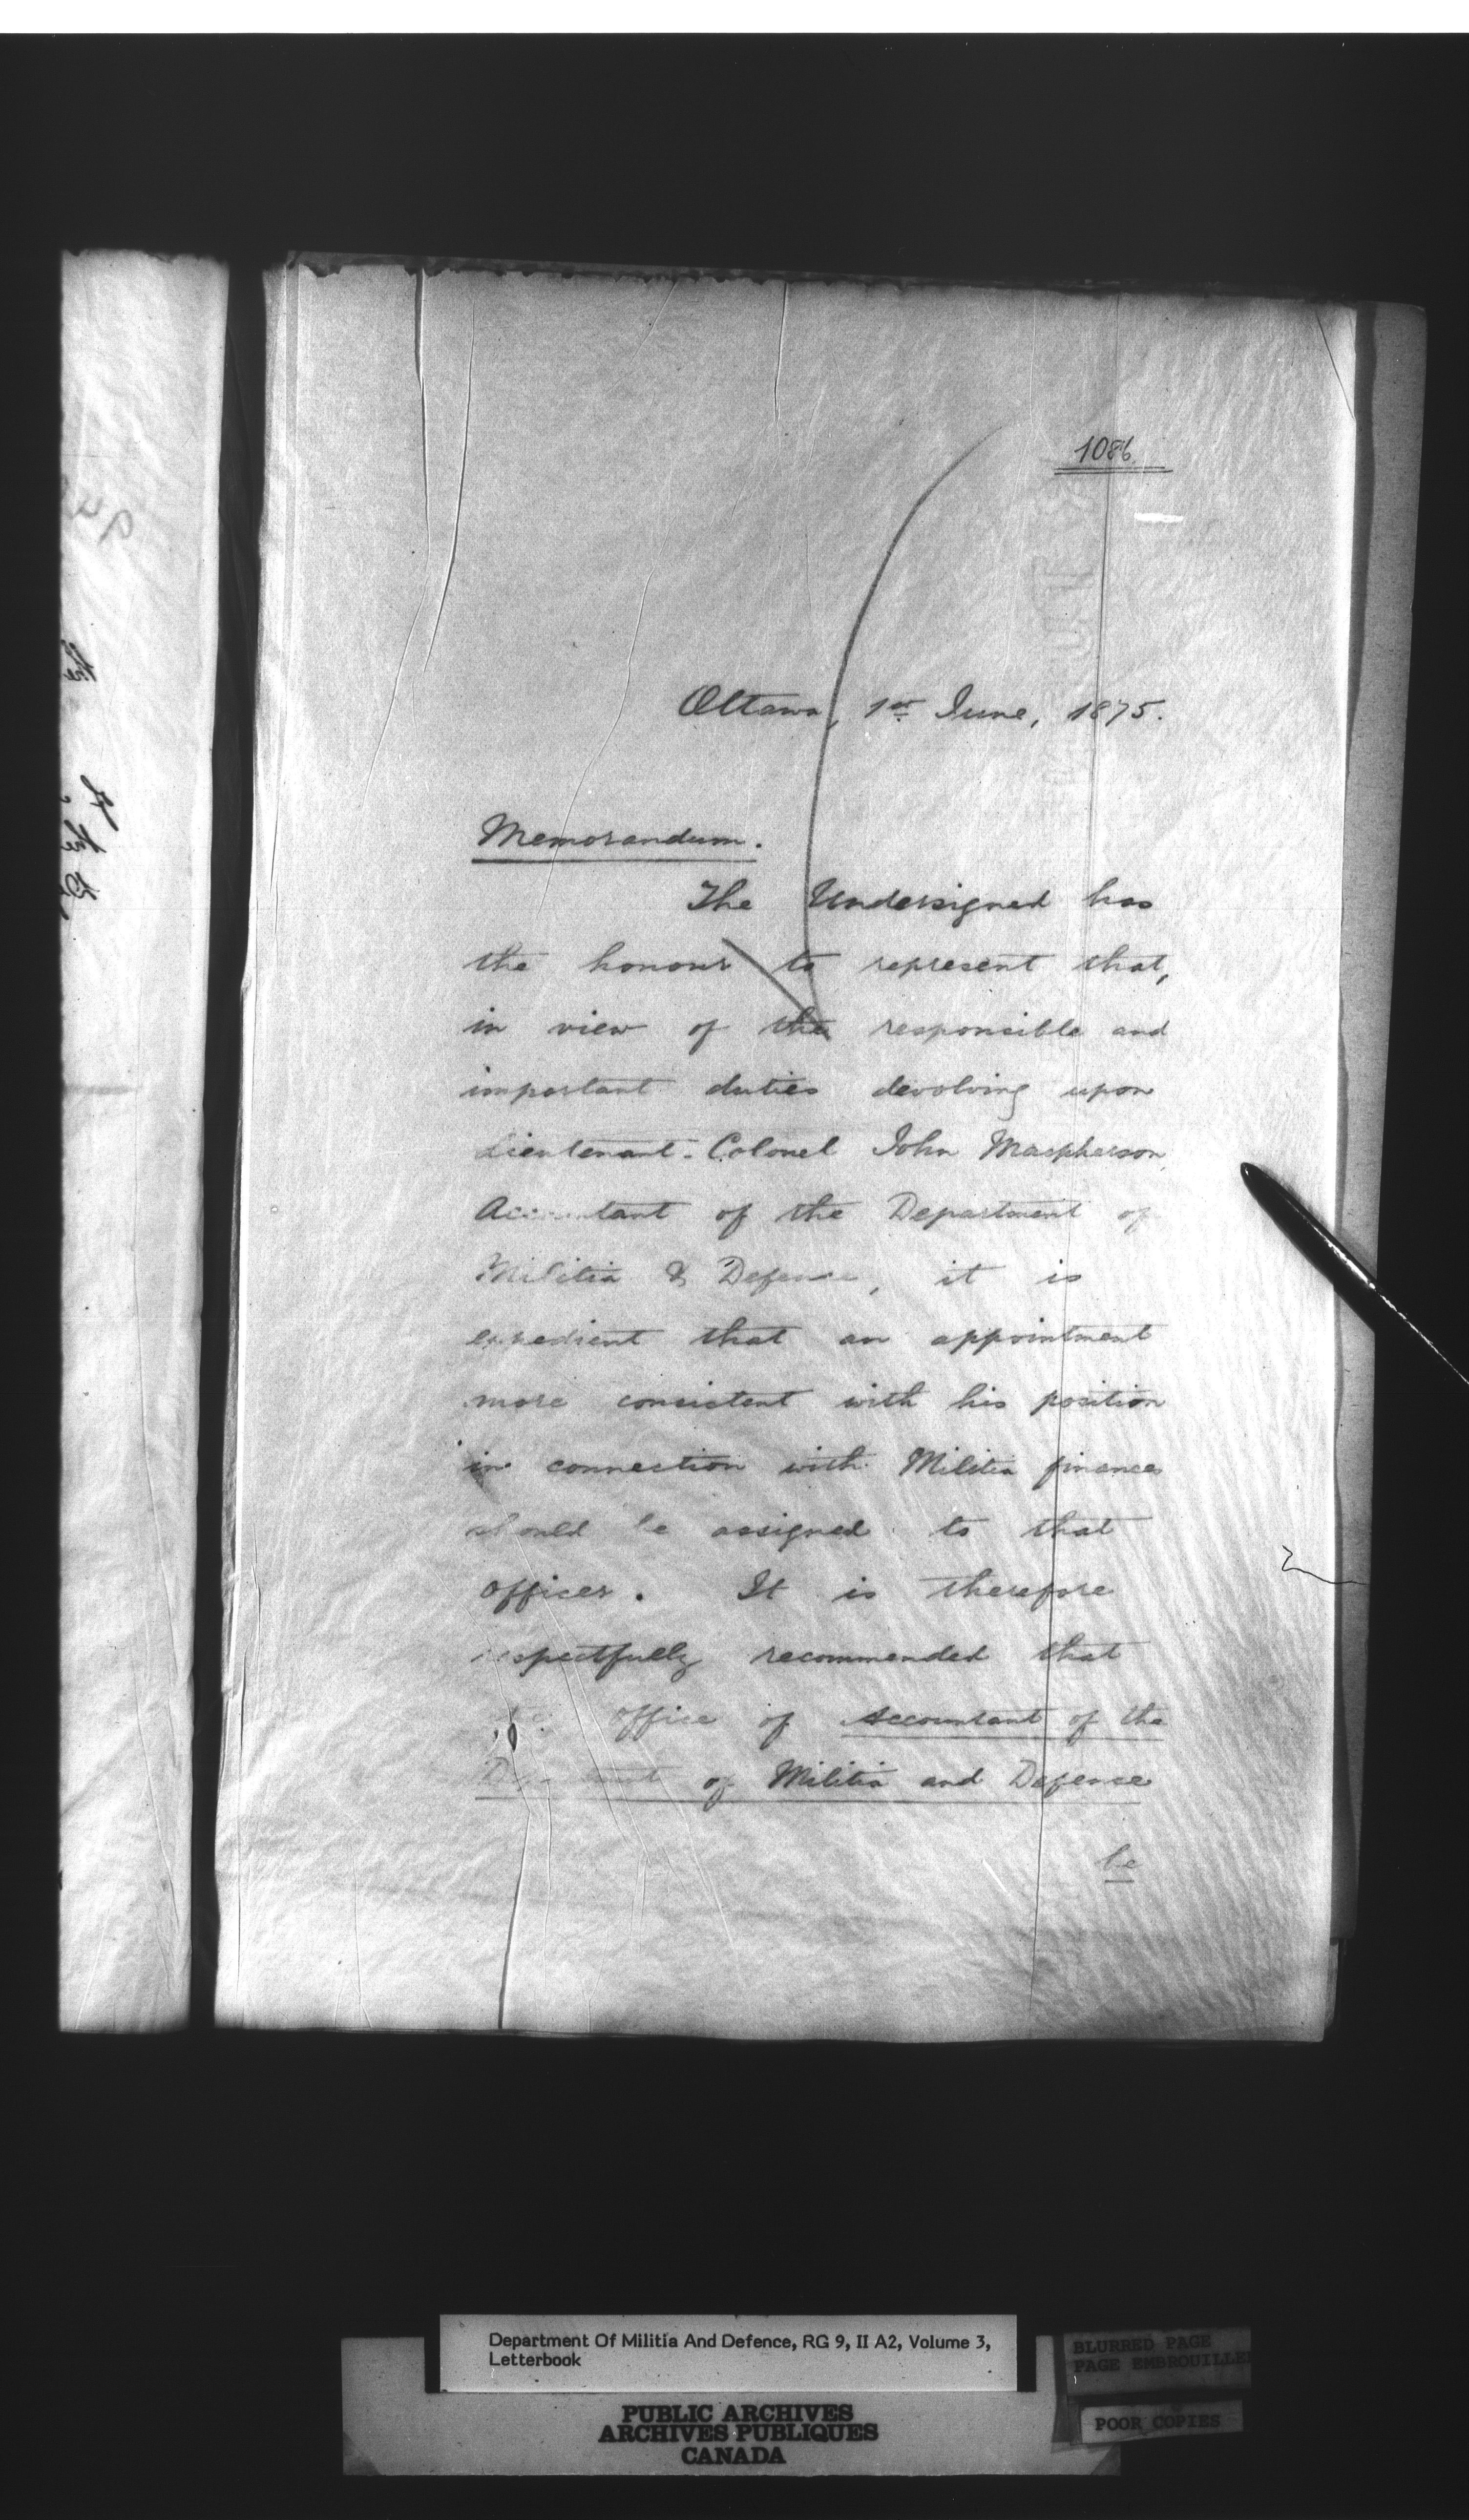 1086
Ottawa, 1st June, 1875.
Memorandum.
The Undersigned has
the honour to represent that,
in view of the responsible and
important duties devolving upon
Lieutenant-Colonel John Macpherson,
Accountant of the Department of
Militia & Defence, it is
expedient that an appointment
more consistent with his position
in connection with Militia finances
should be assigned to that
officer. It is therefore
respectfully recommended that
the office of Accountant of the
Department of Militia and Defence
be
Department Of Militia And Defence, RG 9, II A2, Volume 3,
Letterbook
BLURRED PAGE
PAGE EMBROUILLEE
POOR COPIES
PUBLIC ARCHIVES
ARCHIVES PUBLIQUES
CANADA